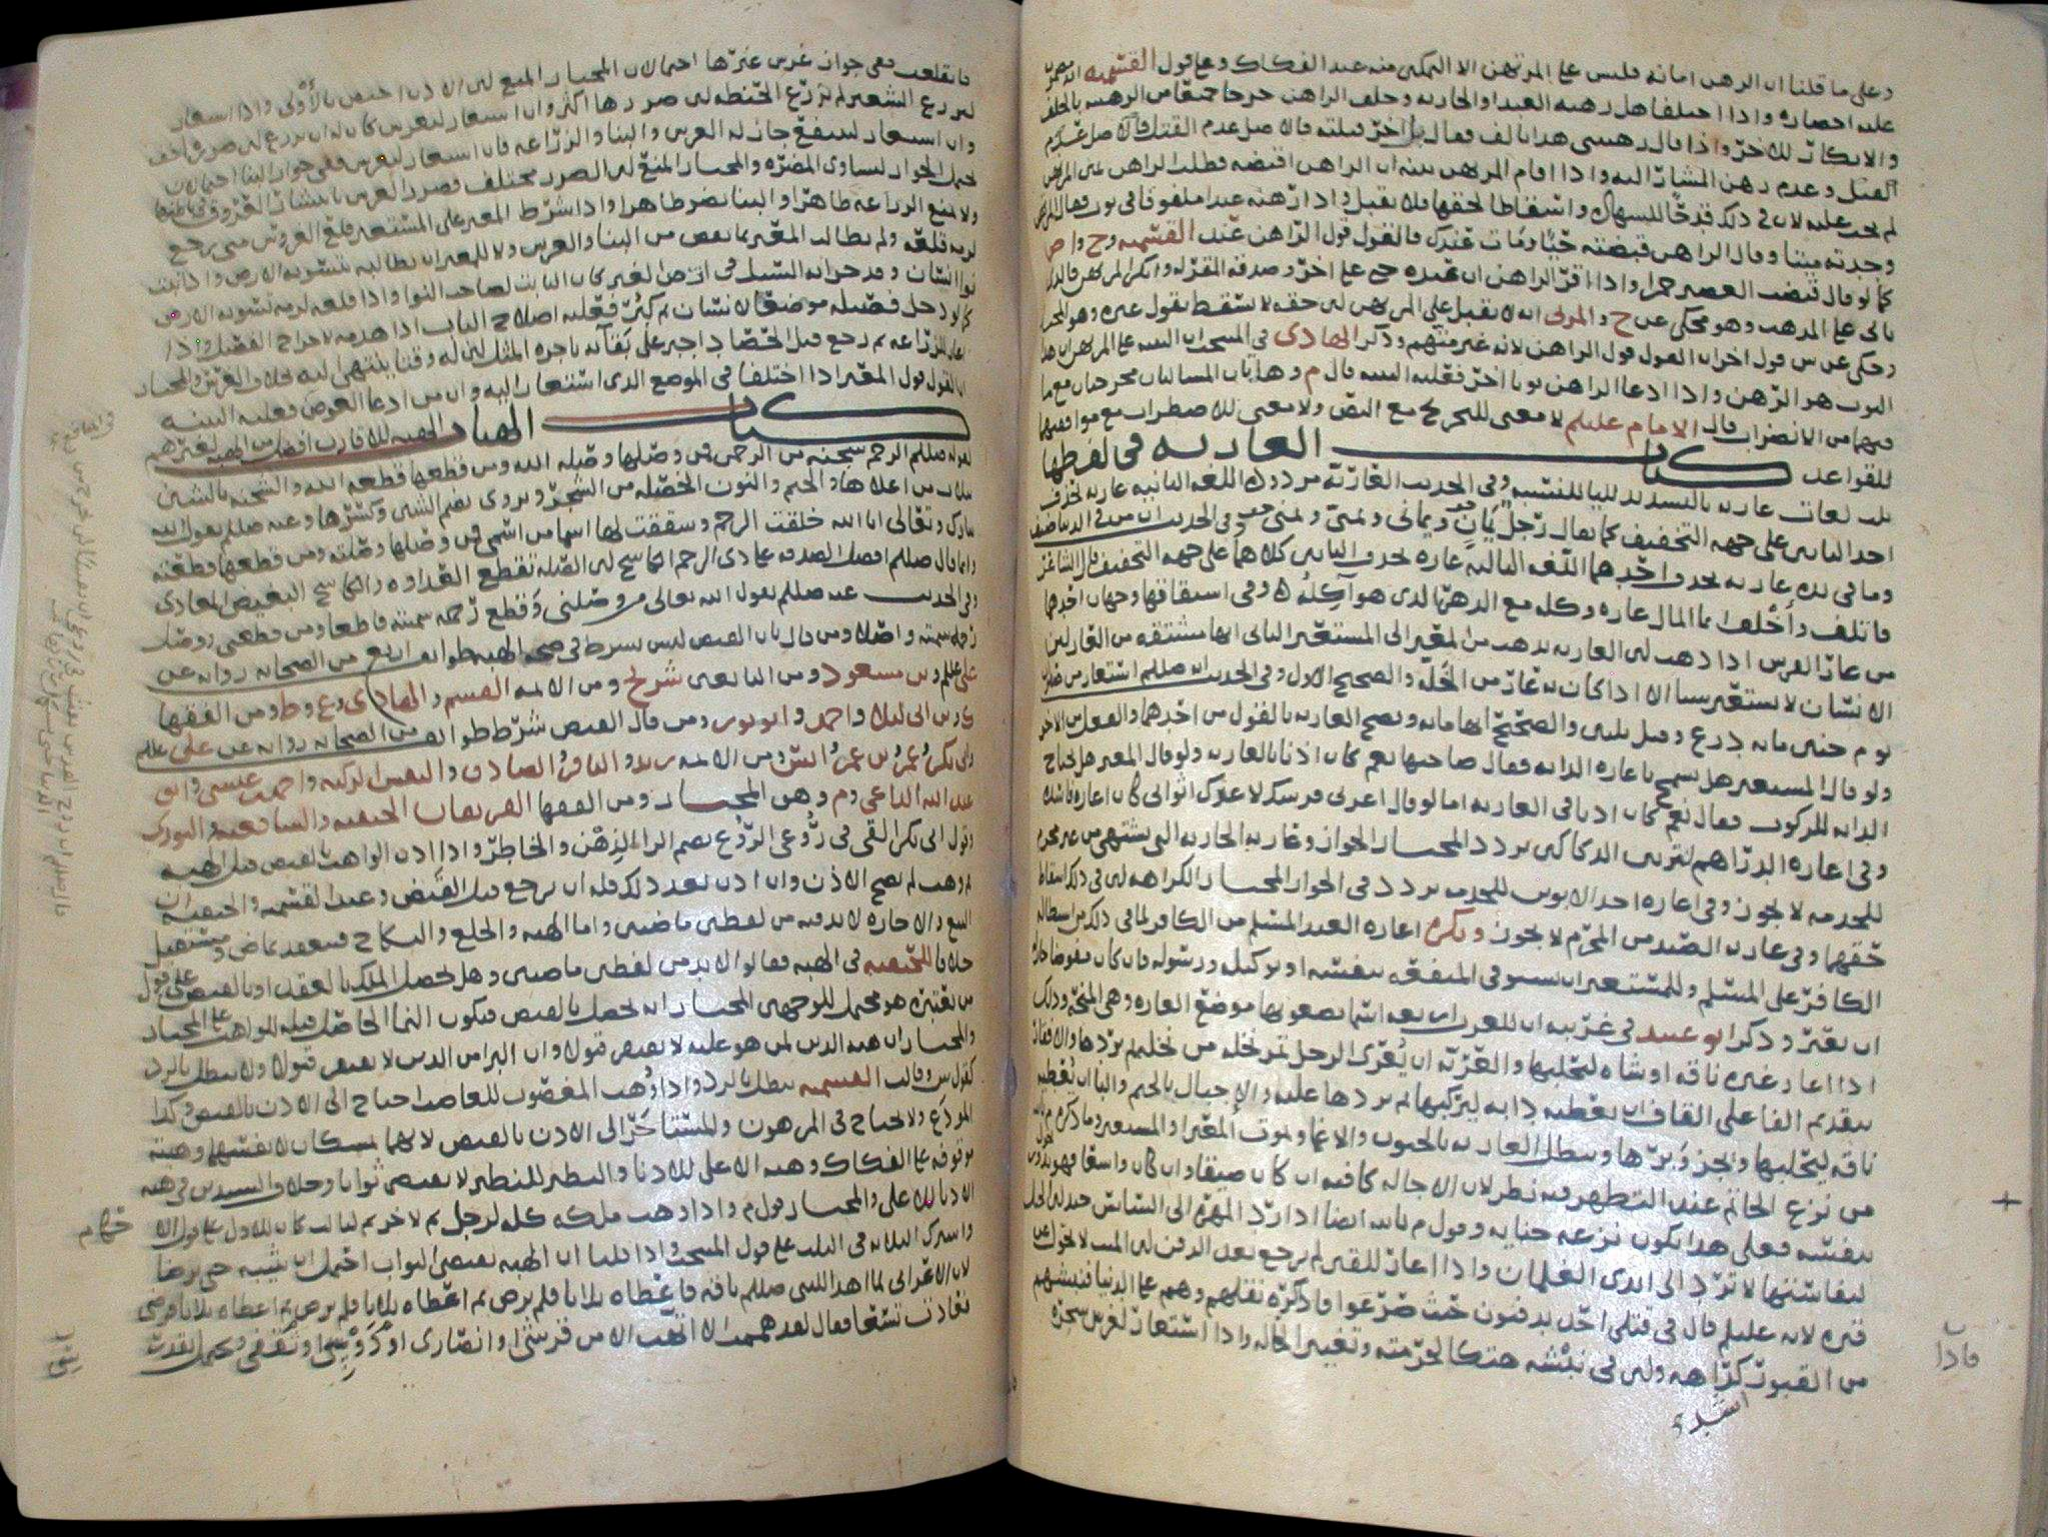 وعلى ما قلنا ان الرهن امانه فليس على المرتهن الا التمكين منه عند الفكاك وعلى قول القسميه انه مضمون
عليه احضاره واذا اختلفا هل رهنه العبد او الجاريه وحلف الراهن خرجا جميعا من الرهنيه بالحلف
والانكار للاخر واذا قال رهنتنى هذا بالف فقال بل اخر قبلته فالاصل عدم
القتل وعدم رهن المشار اليه واذا اقام المرتهن بينه ان الراهن اقبضه فطلب الراهن يمين المرتهن
لم يجب عليه لان فى ذلك قدحا للشهاده واسقاطا لحقها فلا يقبل واذا رهنه عبدا ملفوفا فى ثوب فقال المرتهن
وجدته ميتا وقال الراهن قبضته حيا ومات عندك فالقول قول الراهن عند القسميه وح
كما لو قال قبضت العصير خمرا واذا اقر الراهن ان عبده جنى على اخر وصدقه المقر له وانكر المرتهن
على المذهب وهو محكى عن ح والمزنى انه لا يقبل على المرتهن لان حقه لا يسقط بقول غيره وهو المختار
وحكى عن ش قول اخر ان القول قول الراهن لانه غير متهم وذكر الهادى فى المنتخب ان البينه على المرتهن ان هذا
الثوب هو الرهن واذا ادعا الراهن ثوبا اخر فعليه البينه قال م وهاتان المسالتان محرجتان مع ما
فيهما من الاضطراب قال الامام عليلم لا معنى للتحريج مع النص ولا معنى للاضطراب مع موافقتها
للقواعد كتاب العاريه فى لفظها
ثلاث لغات عاريه بالتشديد للياء للنسبه وفى الحديث العاريه مردوده اللغه الثانيه عاريه بحذف
احد اليائين على جهه التخفيف كما يقال رجل يمان ويمانى وفى الحديث ان من فى الدنيا ضيف
وما فى يده عاريه بحذف احدهما اللغه الثالثه عاره بحذف اليائين كلاهما على جهه التخفيف قال الشاعر
فاتلف واخلف انما المال عاره وكله مع الدهر الذى هو اكله وفى اشتقاقها وجهان احدهما
من عار الفرس اذا ذهب لان العاريه تذهب من المعير الى المستعير الثانى انها مشتقه من العار لان
الانسان لا يستعير شيئا الا اذا كان به عار من الخله والصحيح الاول وفى الحديث انه صللم استعار من صفوان
يوم حنين مايه درع وقيل ثلثين والصحيح انها مايه وتصح العاريه بالقول من احدهما والفعل من الاخر
ولو قال المستعير هل تسمح باعاره الدابه فقال صاحبها نعم كان اذنا بالعاريه ولو قال المعير هل تحتاج
الدابه للركوب فقال نعم كان اذنا فى العاريه اما لو قال اعرنى فرسك لاعلوك اثوابى كان اعاره فاسده
وفى اعاره الدراهم لتزيين الدكاكين تردد المختار الجواز وعاريه الجاريه التى تشتهى من غير محرم
للخدمه لا يجوز وفى اعاره احد الابوين للخدمه تردد فى الجواز المختار الكراهه لان فى ذلك اسقاط
حقهما وفى عاريه الصيد من المحرم لا يجوز ويكره اعاره العبد المسلم من الكافر لما فى ذلك من استطاله
الكافر على المسلم وللمستعير ان يستوفى المنفعه بنفسه او بوكيله ورسوله فان كان مفوضا جاز له
ان يعير وذكر ابو عبيد فى غريبه ان للعرب اربعه اسما يضعونها موضع العاره وهى المنحه وذلك
اذا اعار غيره ناقه او شاه ليحلبها والعريه ان يعرى الرجل ثمر نخله من نخليه ثم يردها والافقار
بتقديم الفا على القاف ان يعطيه دابه ليركبها ثم يردها عليه والاخبال بالخا والبا ان يعطيه
ناقه ليحلبها ويجز وبرها وتبطل العاريه بالجنون والاغما وبموت المعير او المستعير وما ذكره م
من نزع الخاتم عند التطهر فيه نظر لان الاجاله كافيه ان كان ضيقا وان كان واسعا فهو
بنفسه فعلى هذا يكون نزعه جنايه وقول م بالله ايضا اذا رد المهره الى السائس
لنفاستها لا ترد الى ايدى الغلمان واذا اعار للقبر لم يرجع بعد الدفن لان الميت لا يحول عن
قبره لانه عليلم قال فى قتلى احد يدفنون حيث صرعوا فاذكره نقلهم وهم على الدنيا فنبشهم
من القبور كراهه ولان فى نبشه هتكا لحرمته وتغيير الحاله واذا استعار لغرس شجره
فانقلعت ففى جواز غرس غيرها احتمالان المختار المنع لان الاذن اختص بالاولى واذا استعار
ليزرع الشعير لم يزرع الحنطه لان ضررها اكثر وان استعار ليغرس كان له ان يزرع لان ضرره اخف
وان استعار لينتفع جاز له الغرس والبنا والزراعه فان استعار ليغرس ففى جواز البنا احتمالان
يحتمل الجواز لتساوى المضره والمختار المنع لان الضرر مختلف فضرر الغرس بانتشار العروق فى باطنها
ولا يمنع الزراعه ظاهرا والبنا يضر ظاهرا واذا شرط المعير على المستعير قلع الغروس متى رجع
لزمه قلعه ولم يطالب المعير بما نقص من البنا والغرس ولا للمعير ان يطالبه بتسويه الارض واذا نبت
نوا انسان وقد جرا به السيل فى ارض الغير كان النابت لصاحب النوا واذا قلعه لزمه تسويه الارض
كما لو دخل فصيله موضعا لانسان ثم كبر فعليه اصلاح الباب اذا هدمه لاخراج الفصيل واذا
اعار للزراعه ثم رجع قبل الحصاد اجبر على بقائه باجره المثل لان له وقتا ينتهى اليه بخلاف الغرس والمختار
ان القول قول المعير اذا اختلفا فى الموضع الذى استعار اليه وان من ادعا العوض فعليه البينه
كتاب الهبات والهبه للاقارب افضل من الهبه لغيرهم
لقوله صللم الرحم شجنه من الرحمن فمن وصلها وصله الله ومن قطعها قطعه الله والشجنه بالشين
بثلاث من اعلاها والجيم والنون الخصله من الشجر ويروى بضم الشين وكسرها وعنه صللم يقول الله
تبارك وتعالى انا الله خلقت الرحم وشققت لها اسما من اسمى فمن وصلها وصلته ومن قطعها قطعته
وانما قال صللم افضل الصدقه على ذى الرحم الكاشح لان الصله تقطع العداوه والكاشح البغيض المعادى
وفى الحديث عنه صللم يقول الله تعالى من وصلنى وقطع رحمه سميته قاطعا ومن قطعنى ووصل
رحمه سميته واصلا ومن قال بان القبض ليس بشرط فى صحه الهبه طوائف اربع من الصحابه روايه عن
على عليلم وبن مسعود ومن التابعين شريح ومن الائمه القسم والهادى وع وط ومن الفقها
ك وبن ابى ليلا واحمد وابو ثور ومن قال القبض شرط طوائف من الصحابه روايه عن على عليلم
وابى بكر وعمر وبن عمر وانس ومن الائمه زيد والباقر والصادق والنفس الزكيه واحمد بن عيسى وابو
عبد الله الداعى وم وهو المختار ومن الفقها الفريقان الحنفيه والشافعيه والثورى
وقول ابى بكر القى فى روعى الروع بضم الرا الذهن والخاطر واذا اذن الواهب بالقبض قبل الهبه
ثم وهب لم يصح الاذن وان اذن بعد ذلك فله ان يرجع قبل القبض وعند القسميه والحنفيه ان
البيع والاجاره لا بد فيه من لفظين ماضيين واما الهبه والخلع والنكاح فينعقد بماض ومستقبل
خلافا للحنفيه فى الهبه فقالوا لابد من لفظين ماضيين وهل يحصل الملك بالعقد او بالقبض على قول
من يعتبره هو محتمل للوجهين المختار انه يحصل بالقبض فيكون النما الحاصل قبله للواهب على المختار
والمختار ان هبه الدين لمن هو عليه لا يقتضى قبولا وان البرا من الدين لا يقتضى قبولا ولا يبطل بالرد
كقول ش وقالت القسميه يبطل بالرد واذا وهب المغصوب للغاصب احتاج الى الاذن بالقبض وكذا
المودع ولا يحتاج فى المرهون والمستاجر الى الاذن بالقبض لانهما يمسكان لانفسهما وهبته
موقوفه على الفكاك وهبه الاعلى للادنا والنظير للنظير لا يقتضى ثوابا وخلاف السيدين فى هبه
الادنا للاعلى والمختار قول م واذا وهب ملكه كله لرجل ثم لاخر ثم لثالث كان للاول على قول
واشترك الثلاثه فى الثلث على قول المنتخب واذا قلنا ان الهبه تقتضى الثواب احتمل ان يثيبه حتى يرضا
لان الاعرابى لما اهدا للنبى صللم ناقه فاعطاه ثلاثا فلم يرض ثم اعطاه ثلاثا فلم يرض ثم اعطاه ثلاثا فرضى
فعادت تسعا فقال لقد هممت الا اتهب الا من قرشى او انصارى او دوسى او ثقفى ويحتمل